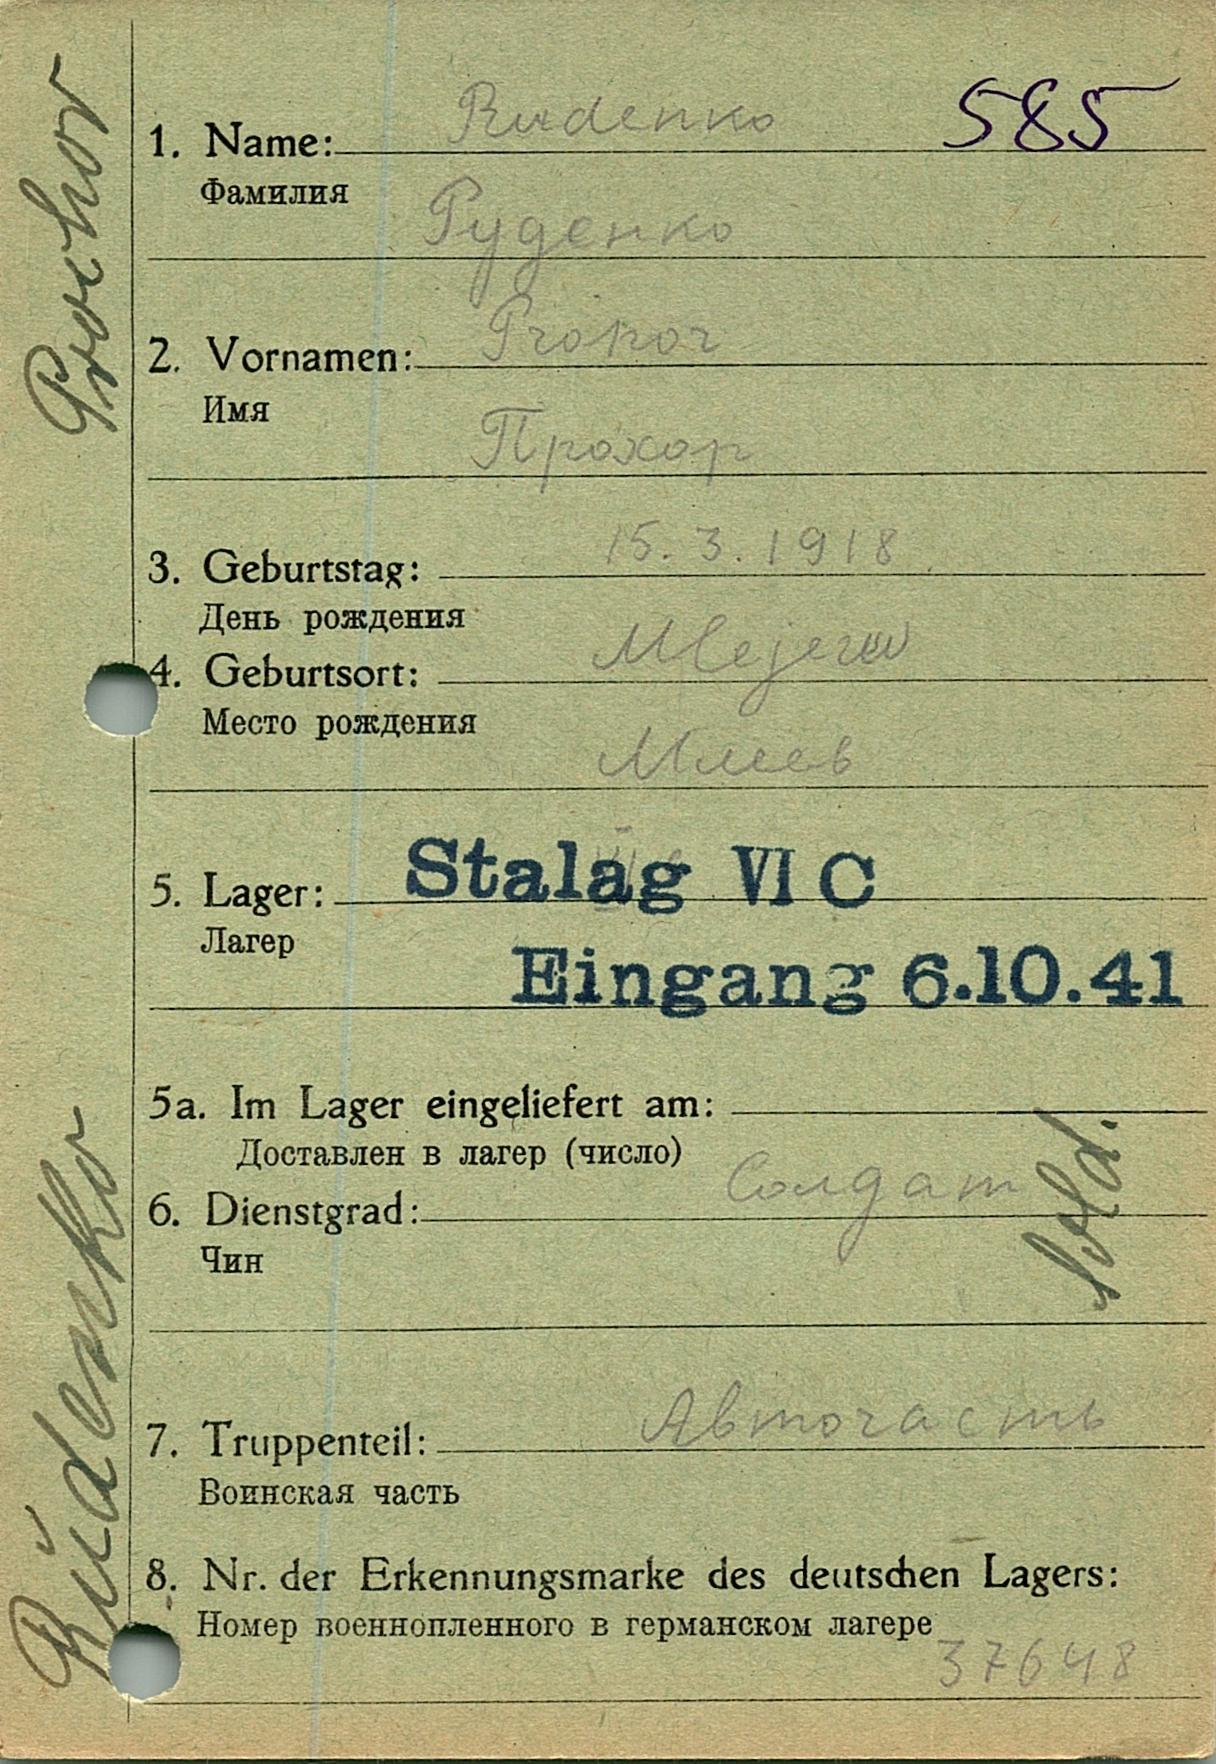 585
1. Name: Rudenko
Фамилия
Руденко
2. Vornamen: Prohor
Имя
Прохор
3. Geburtstag: 15.3.1918
День рождения
4. Geburtsort:
Место рождения
Млеев
5. Lager: Stalag VI C
Лагер
Eingang 6.10.41
5a. Im Lager eingeliefert am:
Доставлен в лагер (число)
6. Dienstgrad: Солдат Sold.
Чин
7. Truppenteil: Авточасть
Воинская часть
8. Nr. der Erkennungsmarke des deutschen Lagers:
Номер военнопленного в германском лагере
37648
Rudenko Prochor